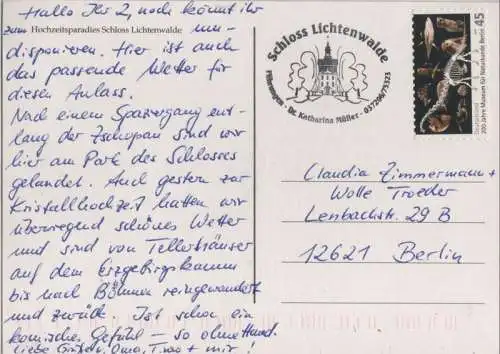 Hallo Ihr 2, noch könnt ihr
zum Hochzeitsparadies Schloss Lichtenwalde um-
disponieren. Hier ist auch
das passende Wetter für
diesen Anlass.
Nach einem Spaziergang ent-
lang der Zschopau sind wir
hier am Park des Schlosses
gelandet. Auch gestern zur
Kristallhochzeit hatten wir
überwiegend schönes Wetter
und sind von Tellerhäuser
auf dem Erzgebirgskamm
bis nach Böhmen reingewandert
und zurück. Ist schon ein
komisches Gefühl - so ohne Hund.
Liebe Grüße v. Oma, + mir!
Schloss Lichtenwalde
Pfarrwagen - Dr. Katharina Müller - 037206/75323
45
Deutschland
200 Jahre Museum für Naturkunde Berlin
Claudia Zimmermann +
Wolle Troeder
Lenbachstr. 29 B
12621 Berlin